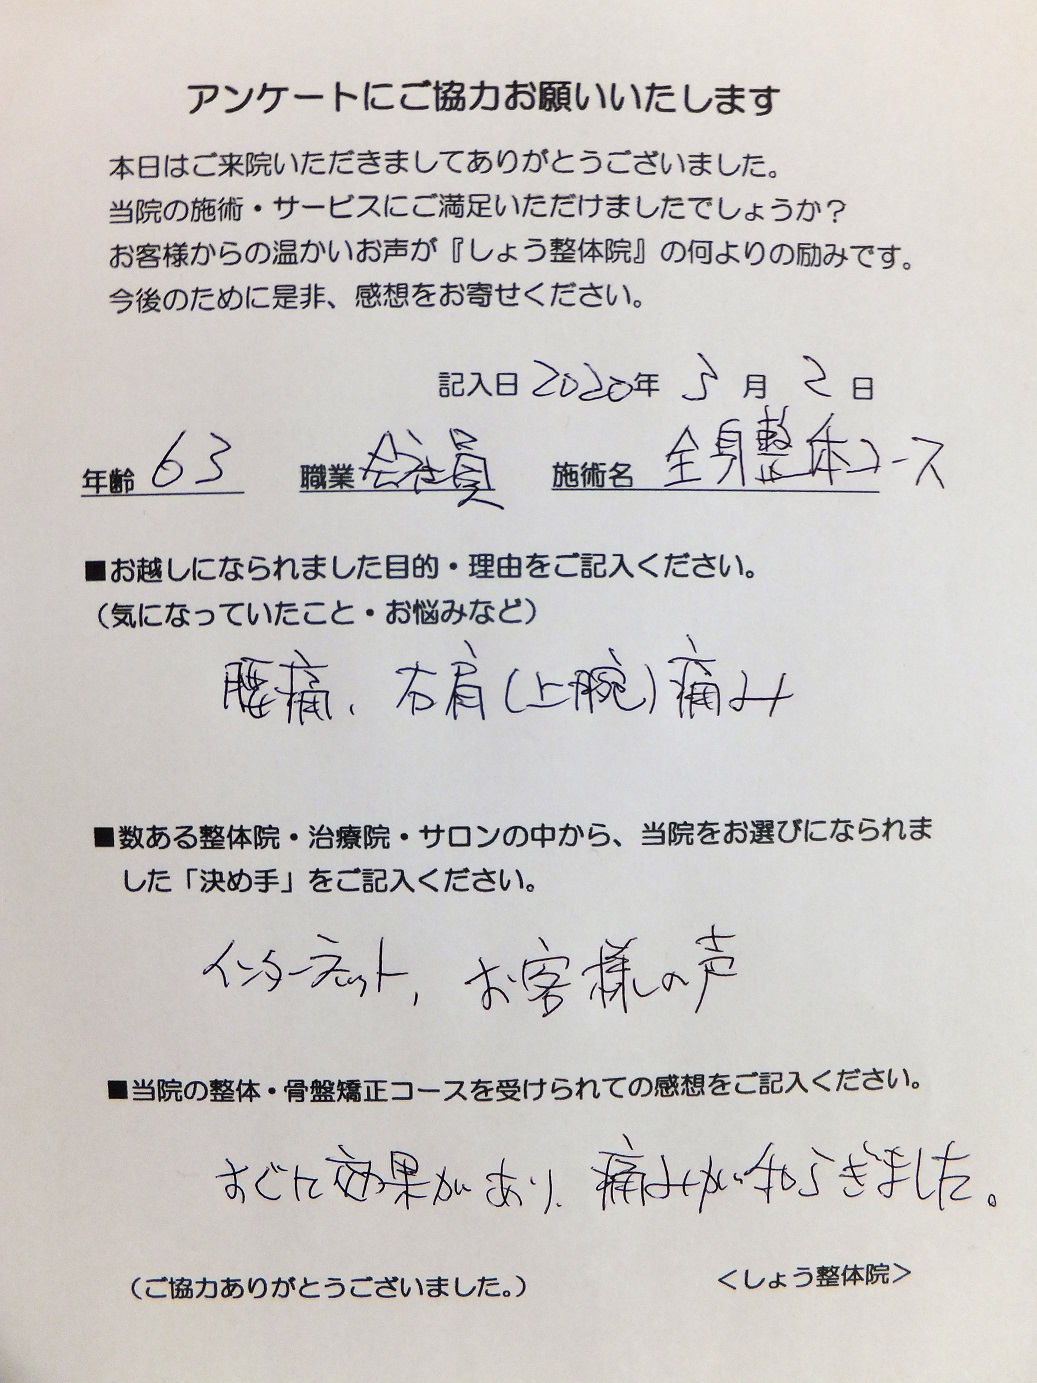 アンケートにご協力お願いいたします
本日はご来院いただきましてありがとうございました。
当院の施術・サービスにご満足いただけましたでしょうか?
お客様からの温かいお声が『しょう整体院』の何よりの励みです。
今後のために是非、感想をお寄せください。
記入日 2020年 3 月 2 日
年齢 63 職業 会社員 施術名 全身整体コース
■お越しになられました目的・理由をご記入ください。
(気になっていたこと・お悩みなど)
腰痛、右肩(上腕)痛み
■数ある整体院・治療院・サロンの中から、当院をお選びになられま
した「決め手」をご記入ください。
インターネット, お客様の声
■当院の整体・骨盤矯正コースを受けられての感想をご記入ください。
すぐに効果があり、痛みが和らぎました。
(ご協力ありがとうございました。) <しょう整体院>